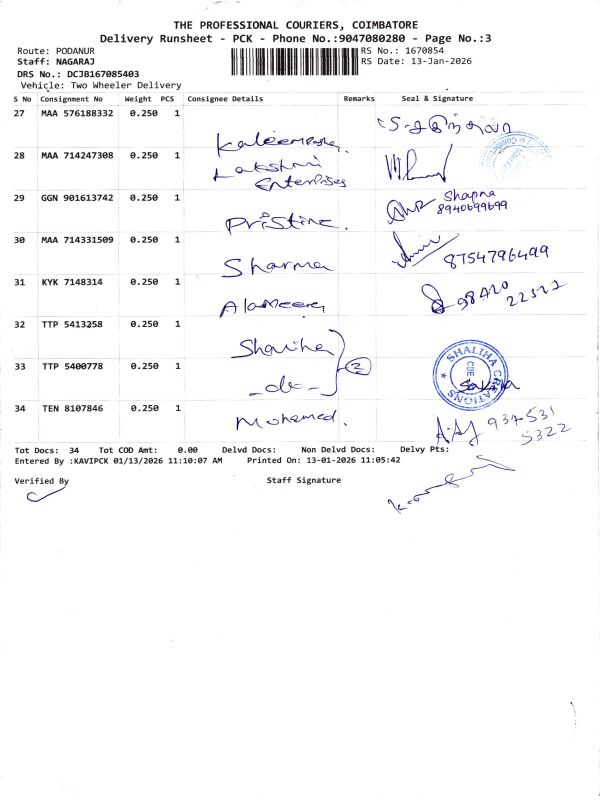 THE PROFESSIONAL COURIERS, COIMBATORE
Delivery Runsheet - PCK - Phone No.:9047080280 - Page No.:3
Route: PODANUR RS No.: 1670854
Staff: NAGARAJ RS Date: 13-Jan-2026
DRS No.: DCJB167085403
Vehicle: Two Wheeler Delivery
S No Consignment No Weight PCS Consignee Details Remarks Seal & Signature
27 MAA 576188332 0.250 1
28 MAA 714247308 0.250 1 Lakshmi Enterprises
29 GGN 901613742 0.250 1 Pristine. Shapna 8940699699
30 MAA 714331509 0.250 1 Sharma 8754796499
31 KYK 7148314 0.250 1 Alameera 98420
32 TTP 5413258 0.250 1 Shaliha
33 TTP 5400778 0.250 1 -do- 2 SHALIHA CREATIONS CBE
34 TEN 8107846 0.250 1 Mohamed. 934531 5322
Tot Docs: 34 Tot COD Amt: 0.00 Delvd Docs: Non Delvd Docs: Delvy Pts:
Entered By :KAVIPCK 01/13/2026 11:10:07 AM Printed On: 13-01-2026 11:05:42
Verified By Staff Signature